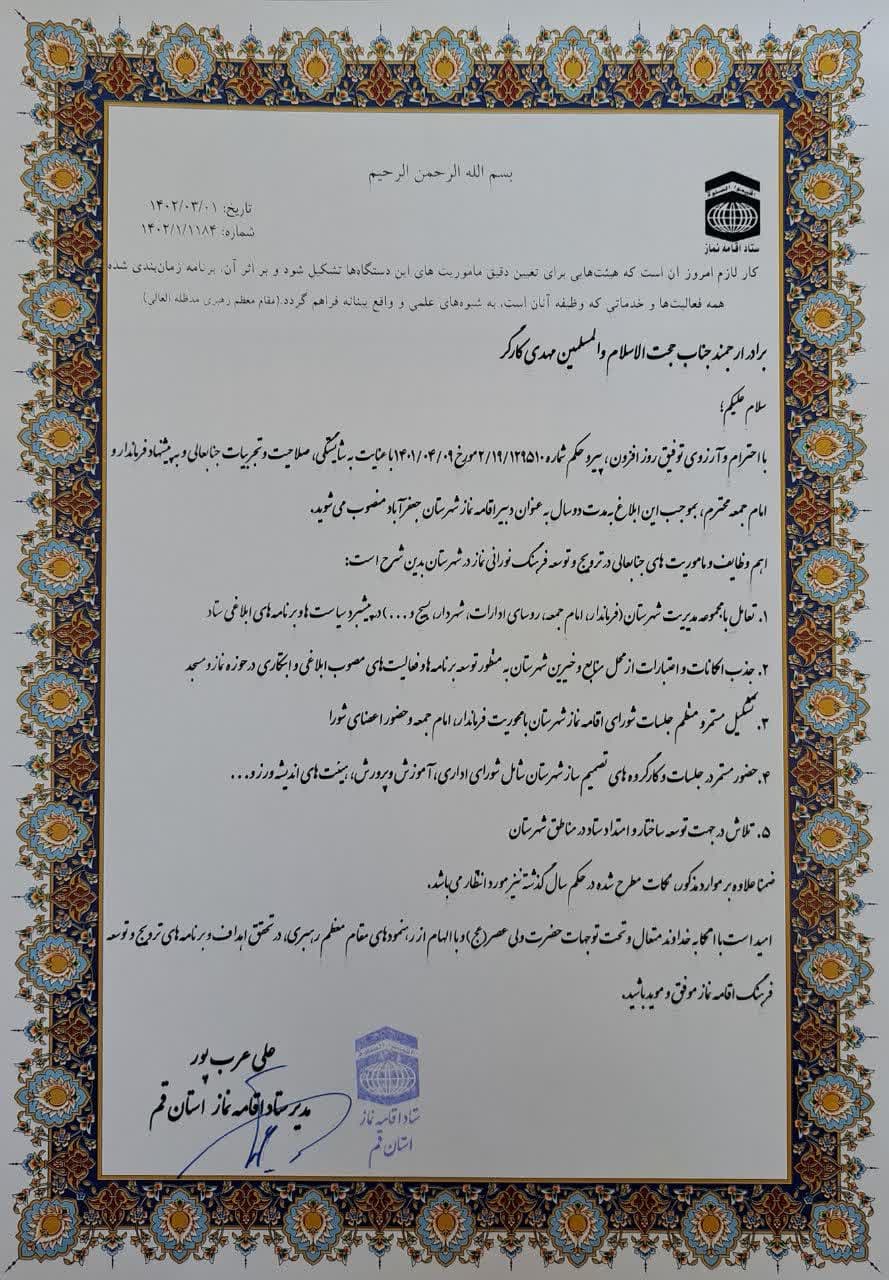 بسم الله الرحمن الرحیم
اقیموا الصلوة
ستاد اقامه نماز
تاریخ: ۱۴۰۲/۰۳/۰۱
شماره: ۱۴۰۲/۱/۱۱۸۴
کار لازم امروز آن است که هیئت‌هایی برای تعیین دقیق ماموریت های این دستگاه‌ها تشکیل شود و بر اثر آن، برنامه زمان‌بندی شده
همه فعالیت‌ها و خدماتی که وظیفه آنان است، به شیوه‌های علمی و واقع بینانه فراهم گردد.(مقام معظم رهبری مدظله العالی)
برادر ارجمند جناب حجت الاسلام والمسلمین مهدی کارگر
سلام علیکم؛
با احترام و آرزوی توفیق روز افزون، پیرو حکم شماره ۲/۱۹/۱۲۹۵۱۰ مورخ ۱۴۰۱/۰۴/۰۹ با عنایت به شایستگی، صلاحیت و تجربیات جنابعالی و به پیشنهاد فرماندار و
امام جمعه محترم، بموجب این ابلاغ به مدت دو سال به عنوان دبیر اقامه نماز شهرستان جعفرآباد منصوب می شوید.
اهم وظایف و ماموریت های جنابعالی در ترویج و توسعه فرهنگ نورانی نماز در شهرستان بدین شرح است:
۱. تعامل با مجموعه مدیریت شهرستان (فرماندار، امام جمعه، روسای ادارات، شهردار، بسیج و ...) در پیشبرد سیاست ها و برنامه های ابلاغی ستاد
۲. جذب امکانات و اعتبارات از محل منابع و خیرین شهرستان به منظور توسعه برنامه ها و فعالیت های مصوب ابلاغی و ابتکاری در حوزه نماز و مسجد
۳. تشکیل مستمر و منظم جلسات شورای اقامه نماز شهرستان با محوریت فرماندار، امام جمعه و حضور اعضای شورا
۴. حضور مستمر در جلسات و کارگروه های تصمیم ساز شهرستان شامل شورای اداری، آموزش و پرورش، هیئت های اندیشه ورز و...
۵. تلاش در جهت توسعه ساختار و امتداد ستاد در مناطق شهرستان
ضمنا علاوه بر موارد مذکور، نکات مطرح شده در حکم سال گذشته نیز مورد انتظار می باشد.
امید است با اتکا به خداوند متعال و تحت توجهات حضرت ولی عصر (عج) و با الهام از رهنمودهای مقام معظم رهبری، در تحقق اهداف و برنامه های ترویج و توسعه
فرهنگ اقامه نماز موفق و موید باشید.
علی عرب پور
مدیر ستاد اقامه نماز استان قم
ستاد اقامه نماز
استان قم